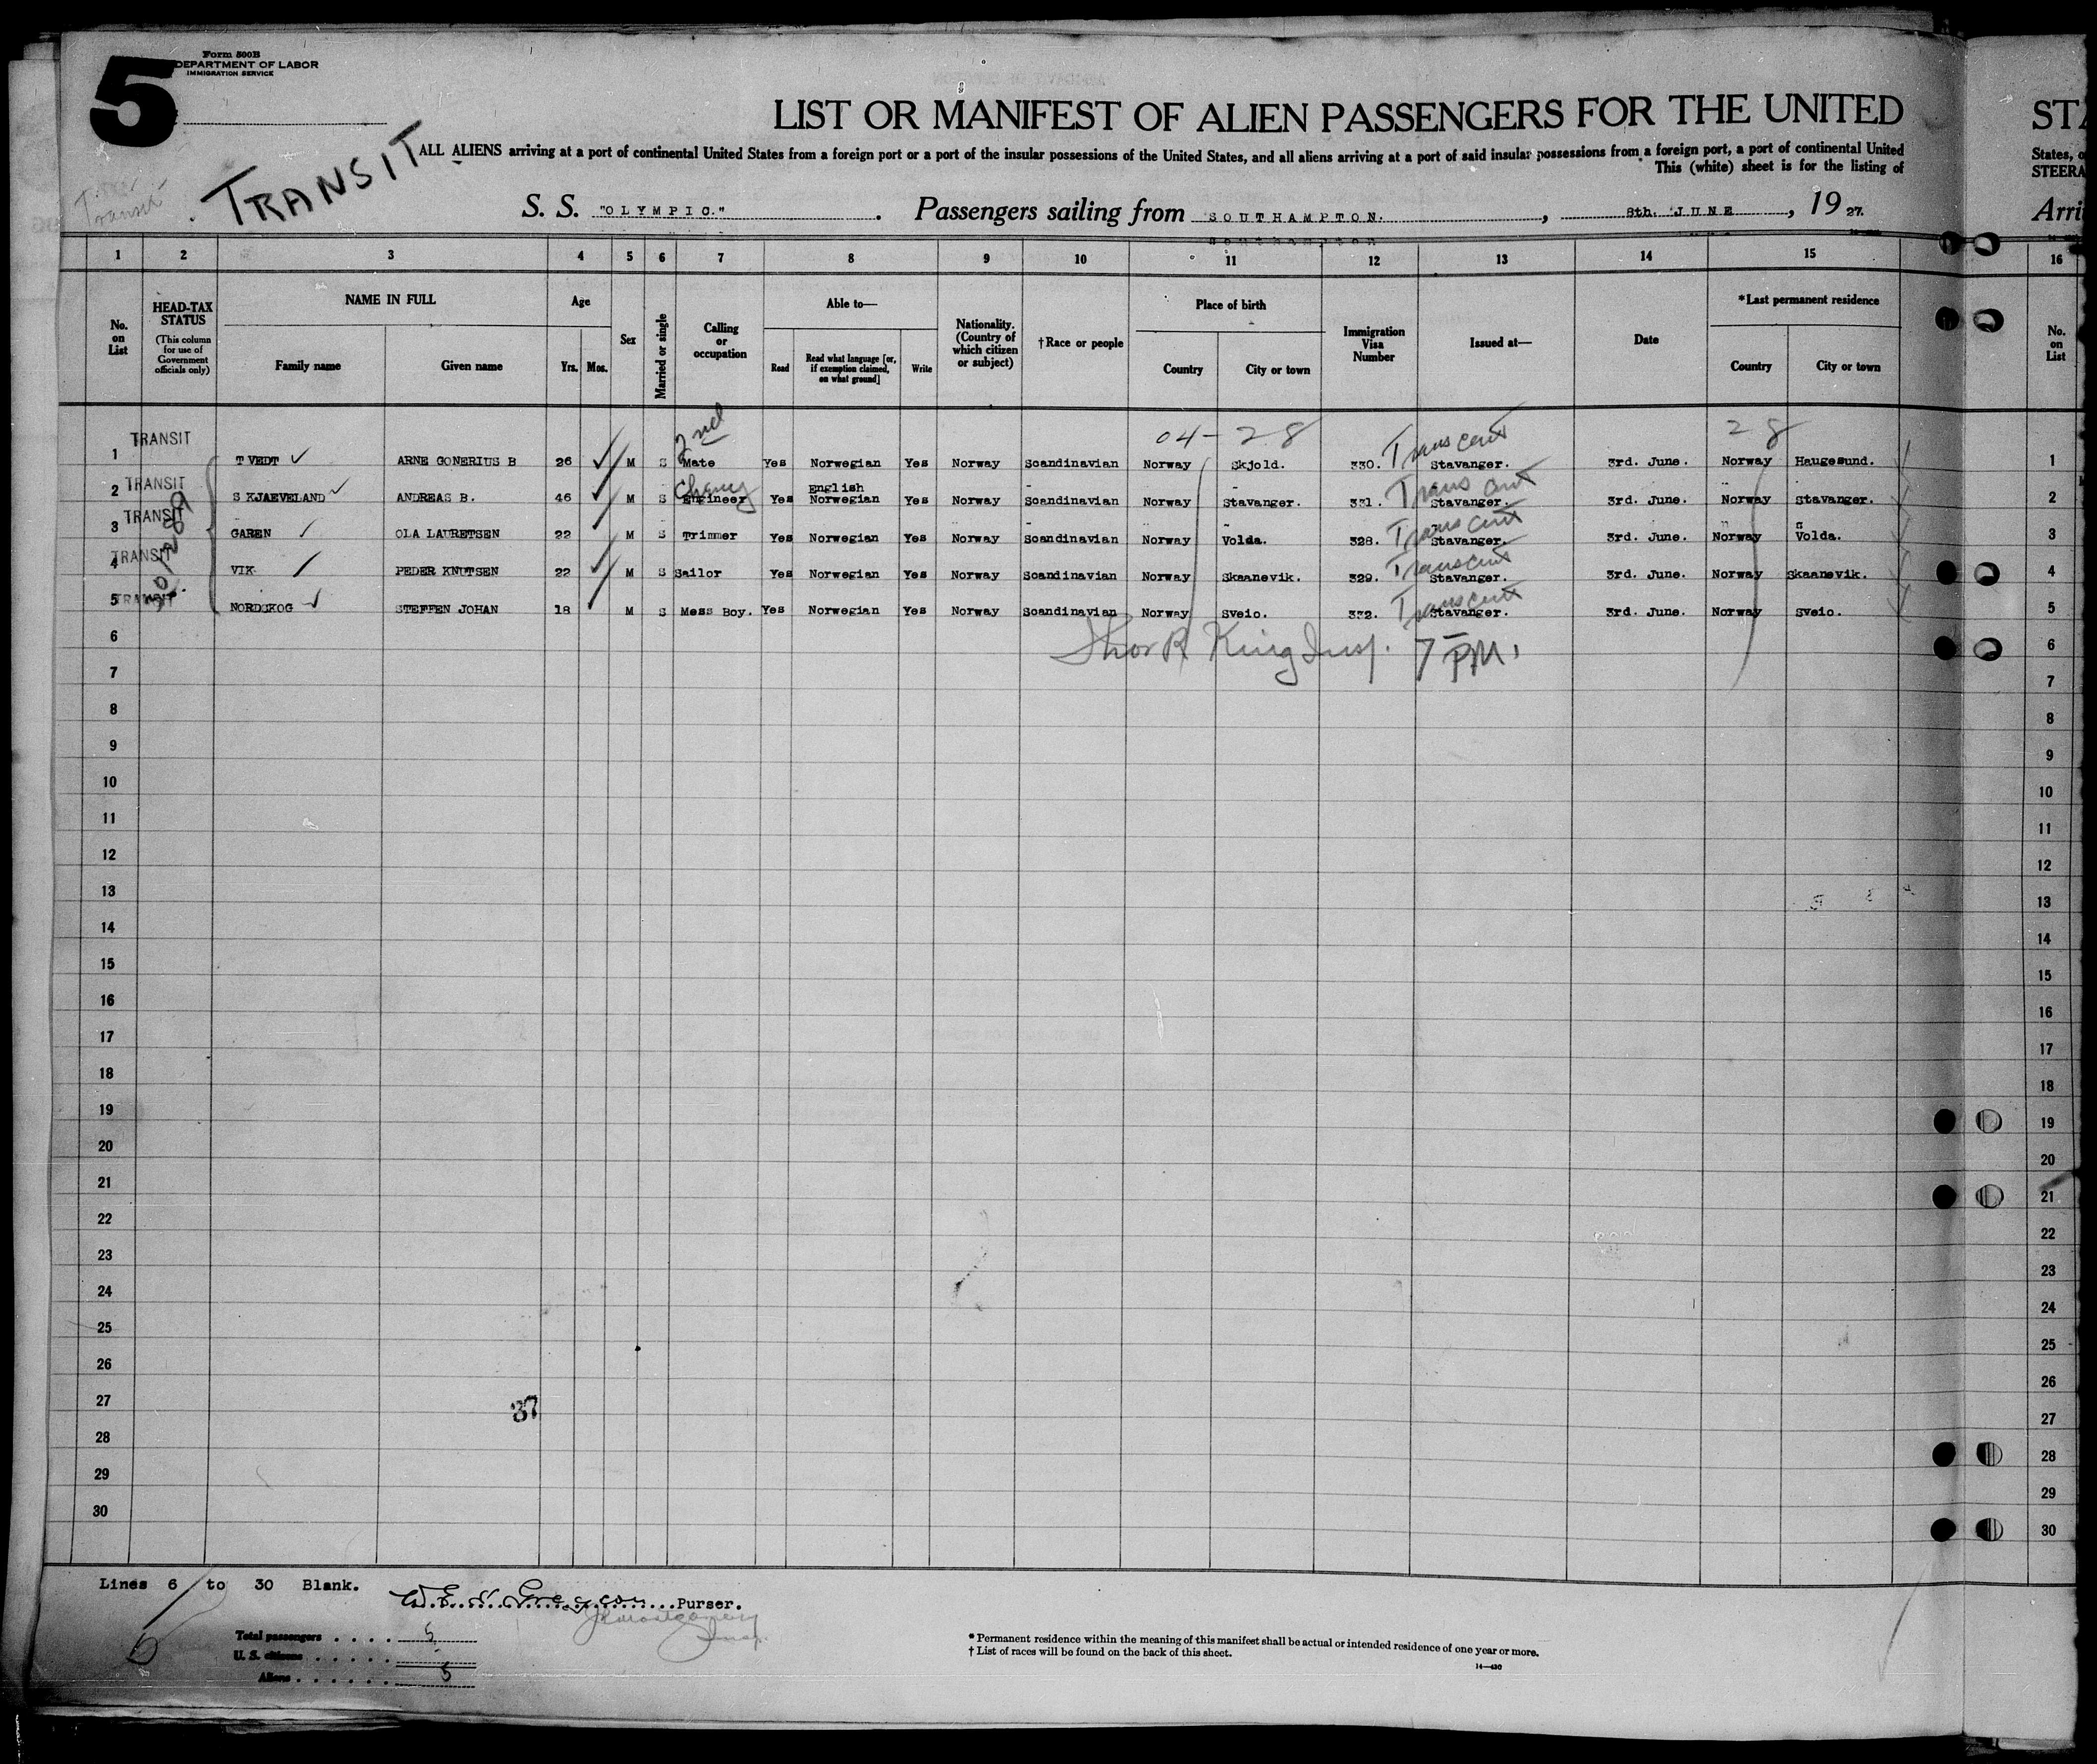 5
Form 500B
DEPARTMENT OF LABOR
IMMIGRATION SERVICE
LIST OR MANIFEST OF ALIEN PASSENGERS FOR THE UNITED
STA
TRANSIT
Transit
ALL ALIENS arriving at a port of continental United States from a foreign port or a port of the insular possessions of the United States, and all aliens arriving at a port of said insular possessions from a foreign port, a port of continental United
States, o
This (white) sheet is for the listing of
STEERA
S. S. "OLYMPIC." . Passengers sailing from SOUTHAMPTON. , 8th. JUNE , 19 27.
Arri
Southampton
1 2 3 4 5 6 7 8 9 10 11 12 13 14 15 16
No. on List
HEAD-TAX STATUS
(This column for use of Government officials only)
NAME IN FULL
Family name Given name
Age
Yrs. Mos.
Sex
Married or single
Calling or occupation
Able to—
Read
Read what language [or, if exemption claimed, on what ground]
Write
Nationality. (Country of which citizen or subject)
†Race or people
Place of birth
Country City or town
Immigration Visa Number
Issued at—
Date
*Last permanent residence
Country City or town
No. on List
2nd 04-28 28
1 TRANSIT TVEDT ARNE GONERIUS B 26 M S Mate Yes Norwegian Yes Norway Scandinavian Norway Skjold. 330. Stavanger. 3rd. June. Norway Haugesund. 1
English
2 TRANSIT SKJAEVELAND ANDREAS B. 46 M S Engineer Yes Norwegian Yes Norway Scandinavian Norway Stavanger. 331. Stavanger. 3rd. June. Norway Stavanger. 2
3 TRANSIT GAREN OLA LAURETSEN 22 M S Trimmer Yes Norwegian Yes Norway Scandinavian Norway Volda. 328. Stavanger. 3rd. June. Norway Volda. 3
4 TRANSIT VIK PEDER KNUTSEN 22 M S Sailor Yes Norwegian Yes Norway Scandinavian Norway Skaanevik. 329. Stavanger. 3rd. June. Norway Skaanevik. 4
5 TRANSIT NORDSKOG STEFFEN JOHAN 18 M S Mess Boy. Yes Norwegian Yes Norway Scandinavian Norway Sveio. 332. Stavanger. 3rd. June. Norway Sveio. 5
6 King Insp. 7 PM. 6
7 7
8 8
9 9
10 10
11 11
12 12
13 13
14 14
15 15
16 16
17 17
18 18
19 19
20 20
21 21
22 22
23 23
24 24
25 25
26 26
27 37 27
28 28
29 29
30 30
Lines 6 to 30 Blank.
Purser.
Total passengers . . . . 5
U. S. citizens . . . . .
Aliens . . . . . . 5
* Permanent residence within the meaning of this manifest shall be actual or intended residence of one year or more.
† List of races will be found on the back of this sheet.
14—430